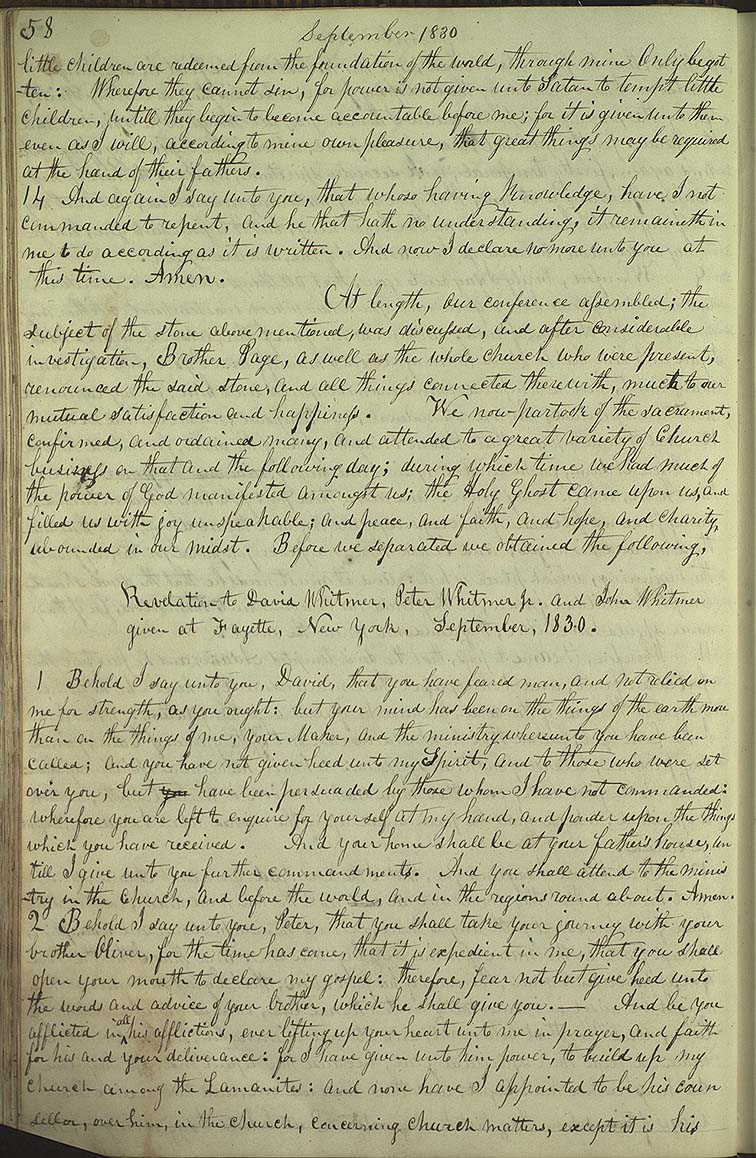 58
September 1830
little children are redeemed from the foundation of the world, through mine Only begot
-ten: Wherefore they cannot sin, for power is not given unto Satan to tempt little
children, untill they begin to become accountable before me; for it is given unto them
even as I will, according to mine own pleasure, that great things may be required
at the hand of their fathers.
14 And again I say unto you, that whoso having knowledge, have I not
commanded to repent, and he that hath no understanding, it remaineth in
me to do according as it is written. And now I declare no more unto you at
this time. Amen.
At length, our conference assembled; the
subject of the stone above mentioned, was discussed, and after considerable
investigation, Brother Page, as well as the whole church who were present,
renounced the said stone, and all things connected therewith, much to our
mutual satisfaction and happiness. We now partook of the sacrament,
confirmed, and ordained many, and attended to a great variety of Church
business on that and the following day; during which time we had much of
the power of God manifested amongst us; the Holy Ghost came upon us, and
filled us with joy unspeakable; and peace, and faith, and hope, and charity,
abounded in our midst. Before we separated we obtained the following,
Revelation to David Whitmer, Peter Whitmer Jr. and John Whitmer
given at Fayette, New York, September, 1830.
1 Behold I say unto you, David, that you have feared man, and not relied on
me for strength, as you ought: but your mind has been on the things of the earth more
than on the things of me, your Maker, and the ministry whereunto you have been
called; and you have not given heed unto my Spirit, and to those who were set
over you, but you have been persuaded by those whom I have not commanded:
wherefore you are left to enquire for yourself at my hand, and ponder upon the things
which you have received. And your home shall be at your father's house, un
till I give unto you further commandments. And you shall attend to the minis
-try in the Church, and before the world, and in the regions round about. Amen.
2 Behold I say unto you, Peter, that you shall take your journey with your
brother Oliver, for the time has come, that it is expedient in me, that you shall
open your mouth to declare my gospel: therefore, fear not but give heed unto
the words and advice of your brother, which he shall give you. — And be you
afflicted in all his afflictions, ever lifting up your heart unto me in prayer, and faith
for his and your deliverance: for I have given unto him power, to build up my
church among the Lamanites: and none have I appointed to be his coun
sellor, over him, in the church, concerning church matters, except it is his